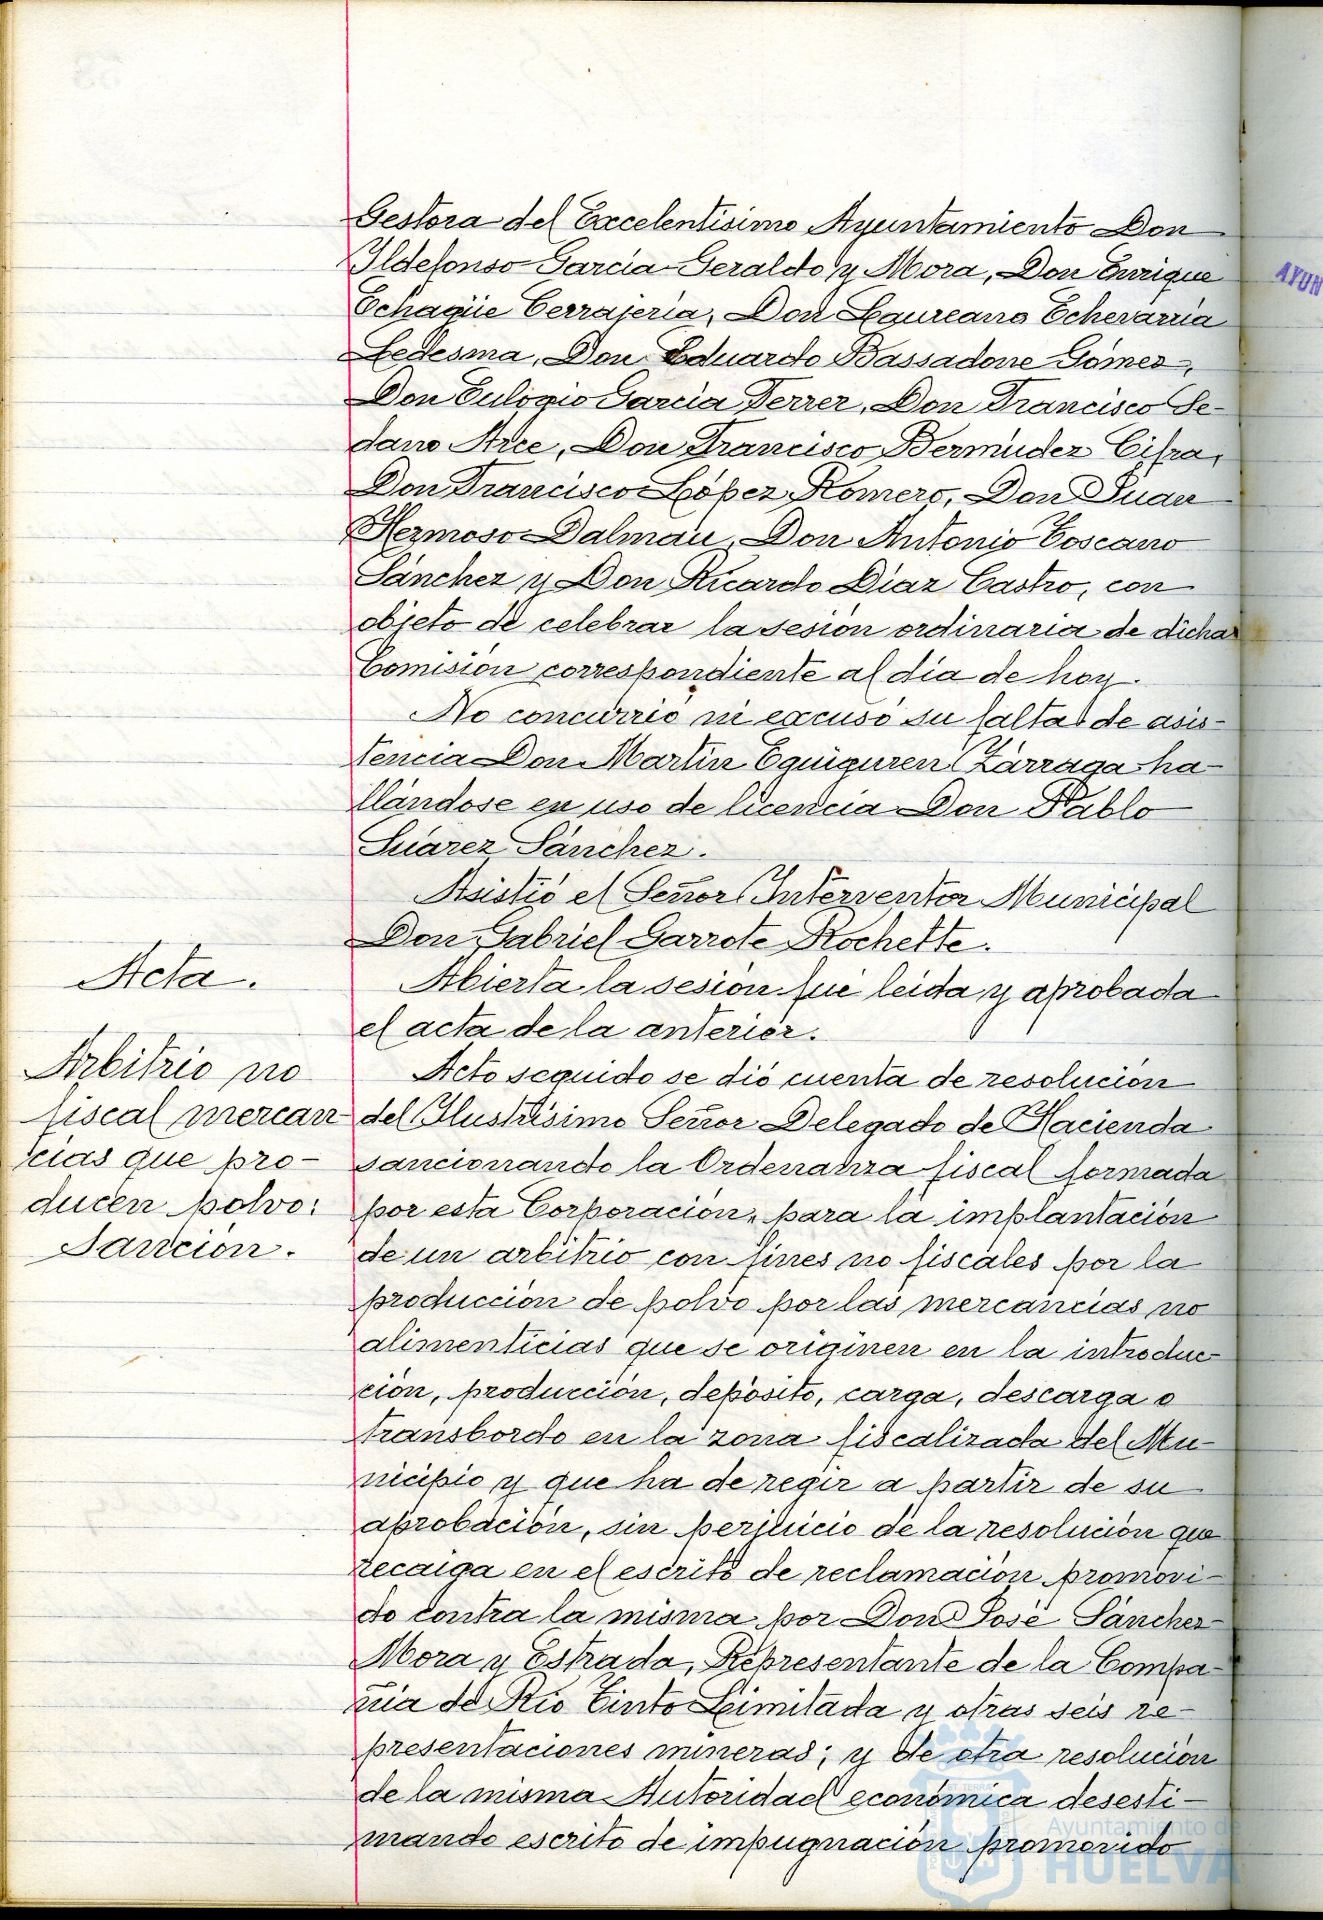 Gestora del Excelentísimo Ayuntamiento Don
Ildefonso García-Geraldo y Mora, Don Enrique
Echagüe Cerrajería, Don Laureano Echevarría
Ledesma, Don Eduardo Bassadone Gómez,
Don Eulogio García Ferrer, Don Francisco Se-
dano Arce, Don Francisco Bermúdez Cifra,
Don Francisco López Romero, Don Juan
Hermoso Dalmau, Don Antonio Toscano
Sánchez y Don Ricardo Díaz Castro, con
objeto de celebrar la sesión ordinaria de dicha
Comisión correspondiente al día de hoy.
No concurrió ni excusó su falta de asis-
tencia Don Martín Eguiguren Zárraga ha-
llándose en uso de licencia Don Pablo
Suárez Sánchez.
Asistió el Señor Interventor Municipal
Don Gabriel Garrote Rochette.
Acta.
Abierta la sesión fué leída y aprobada
el acta de la anterior.
Arbitrio no
fiscal mercan
cías que pro-
ducen polvo:
Sanción.
Acto seguido se dió cuenta de resolución
del Ilustrísimo Señor Delegado de Hacienda
sancionando la Ordenanza fiscal formada
por esta Corporación, para la implantación
de un arbitrio con fines no fiscales por la
producción de polvo por las mercancías no
alimenticias que se originen en la introduc-
ción, producción, depósito, carga, descarga o
transbordo en la zona fiscalizada del Mu-
nicipio y que ha de regir a partir de su
aprobación, sin perjuicio de la resolución que
recaiga en el escrito de reclamación promovi-
do contra la misma por Don José Sánchez-
Mora y Estrada, Representante de la Compa-
ñía de Río Tinto Limitada y otras seis re-
presentaciones mineras; y de otra resolución
de la misma Autoridad económica desesti-
mando escrito de impugnación promovido
AYUN
Ayuntamiento de
HUELVA